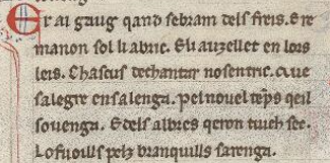 Er ai gaug qand sebram dels freis. E re
manon sol li abric. E li auzellet en lors
leis. Chascus dechantar nosentric. Que
salegre en salenga. Pel novel tēps qeil
sovenga. E dels albres qeron tuich sec.
Lo fuoills pelz branquills sarenga.